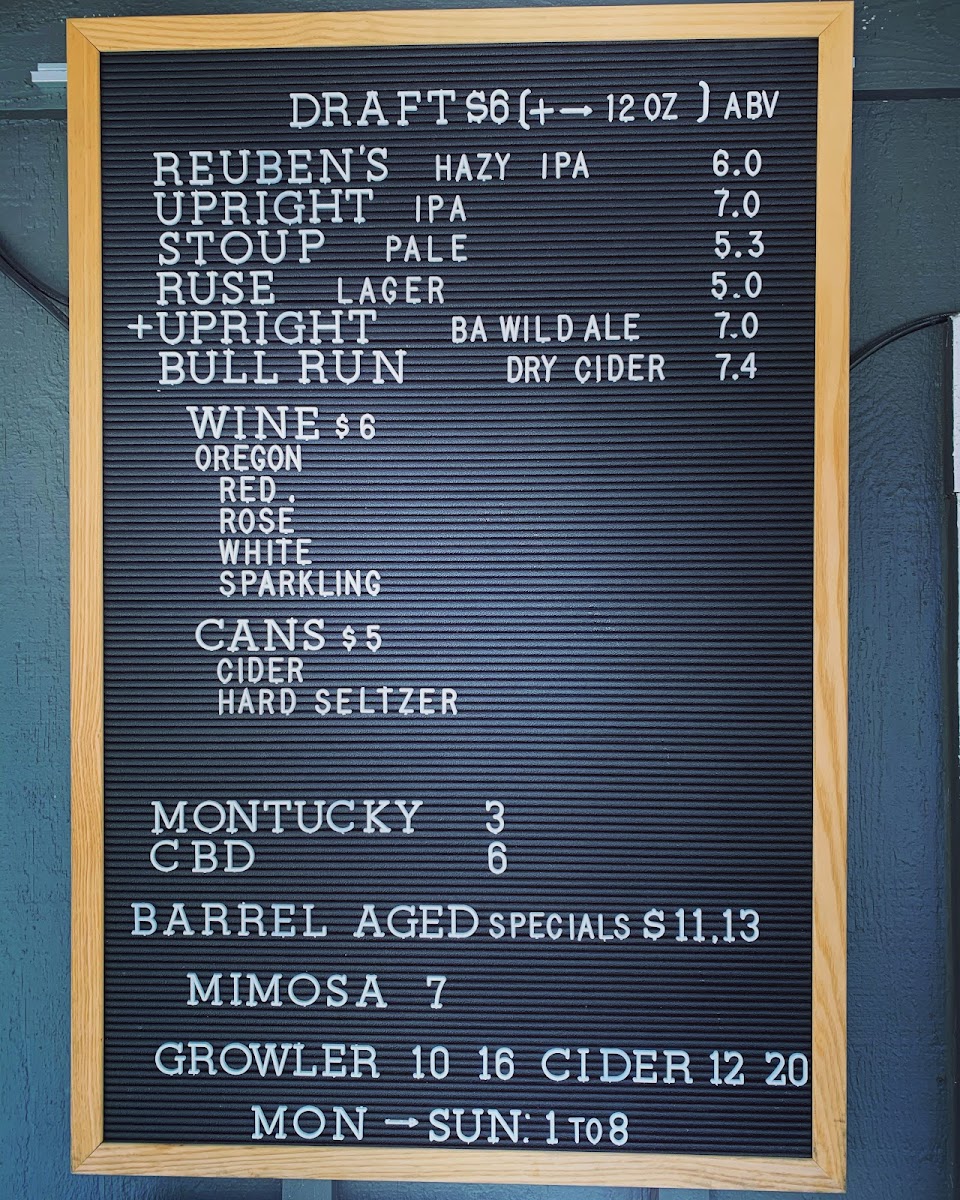 DRAFT $6 (+→ 12 OZ ) ABV
REUBEN'S HAZY IPA 6.0
UPRIGHT IPA 7.0
STOUP PALE 5.3
RUSE LAGER 5.0
+UPRIGHT BA WILD ALE 7.0
BULL RUN DRY CIDER 7.4
WINE $6
OREGON
RED .
ROSE
WHITE
SPARKLING
CANS $5
CIDER
HARD SELTZER
MONTUCKY 3
CBD 6
BARREL AGED SPECIALS $11,13
MIMOSA 7
GROWLER 10 16 CIDER 12 20
MON → SUN: 1 TO 8